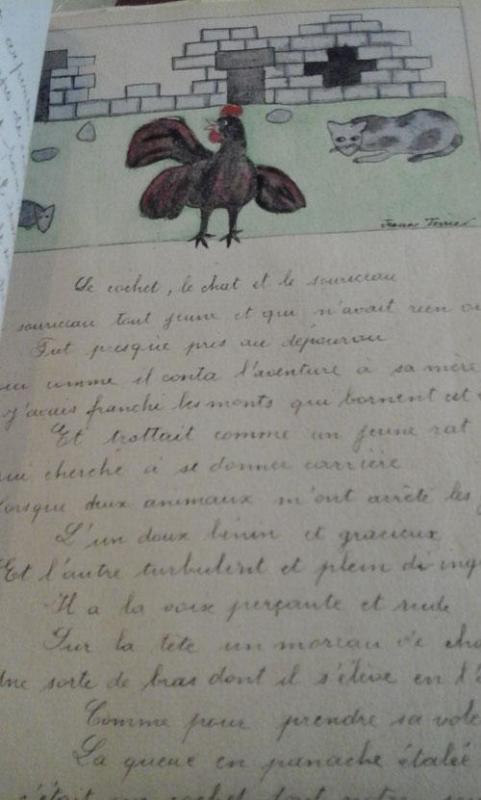 Le cochet, le chat et le souriceau
souriceau tout jeune et qui n'avait rien
Fut presque pris au dépourvu
comme il conta l'aventure à sa mère
J'avais franchi les monts qui bornent cet
Et trottait comme un jeune rat
qui cherche à se donner carrière
Lorsque deux animaux m'ont arrêté les
L'un doux bénin et gracieux
Et l'autre turbulent et plein
Il a la voix perçante et rude
Sur la tête un morceau de
Une sorte de bras dont il s'élève en
Comme pour prendre sa
La queue en panache étalée